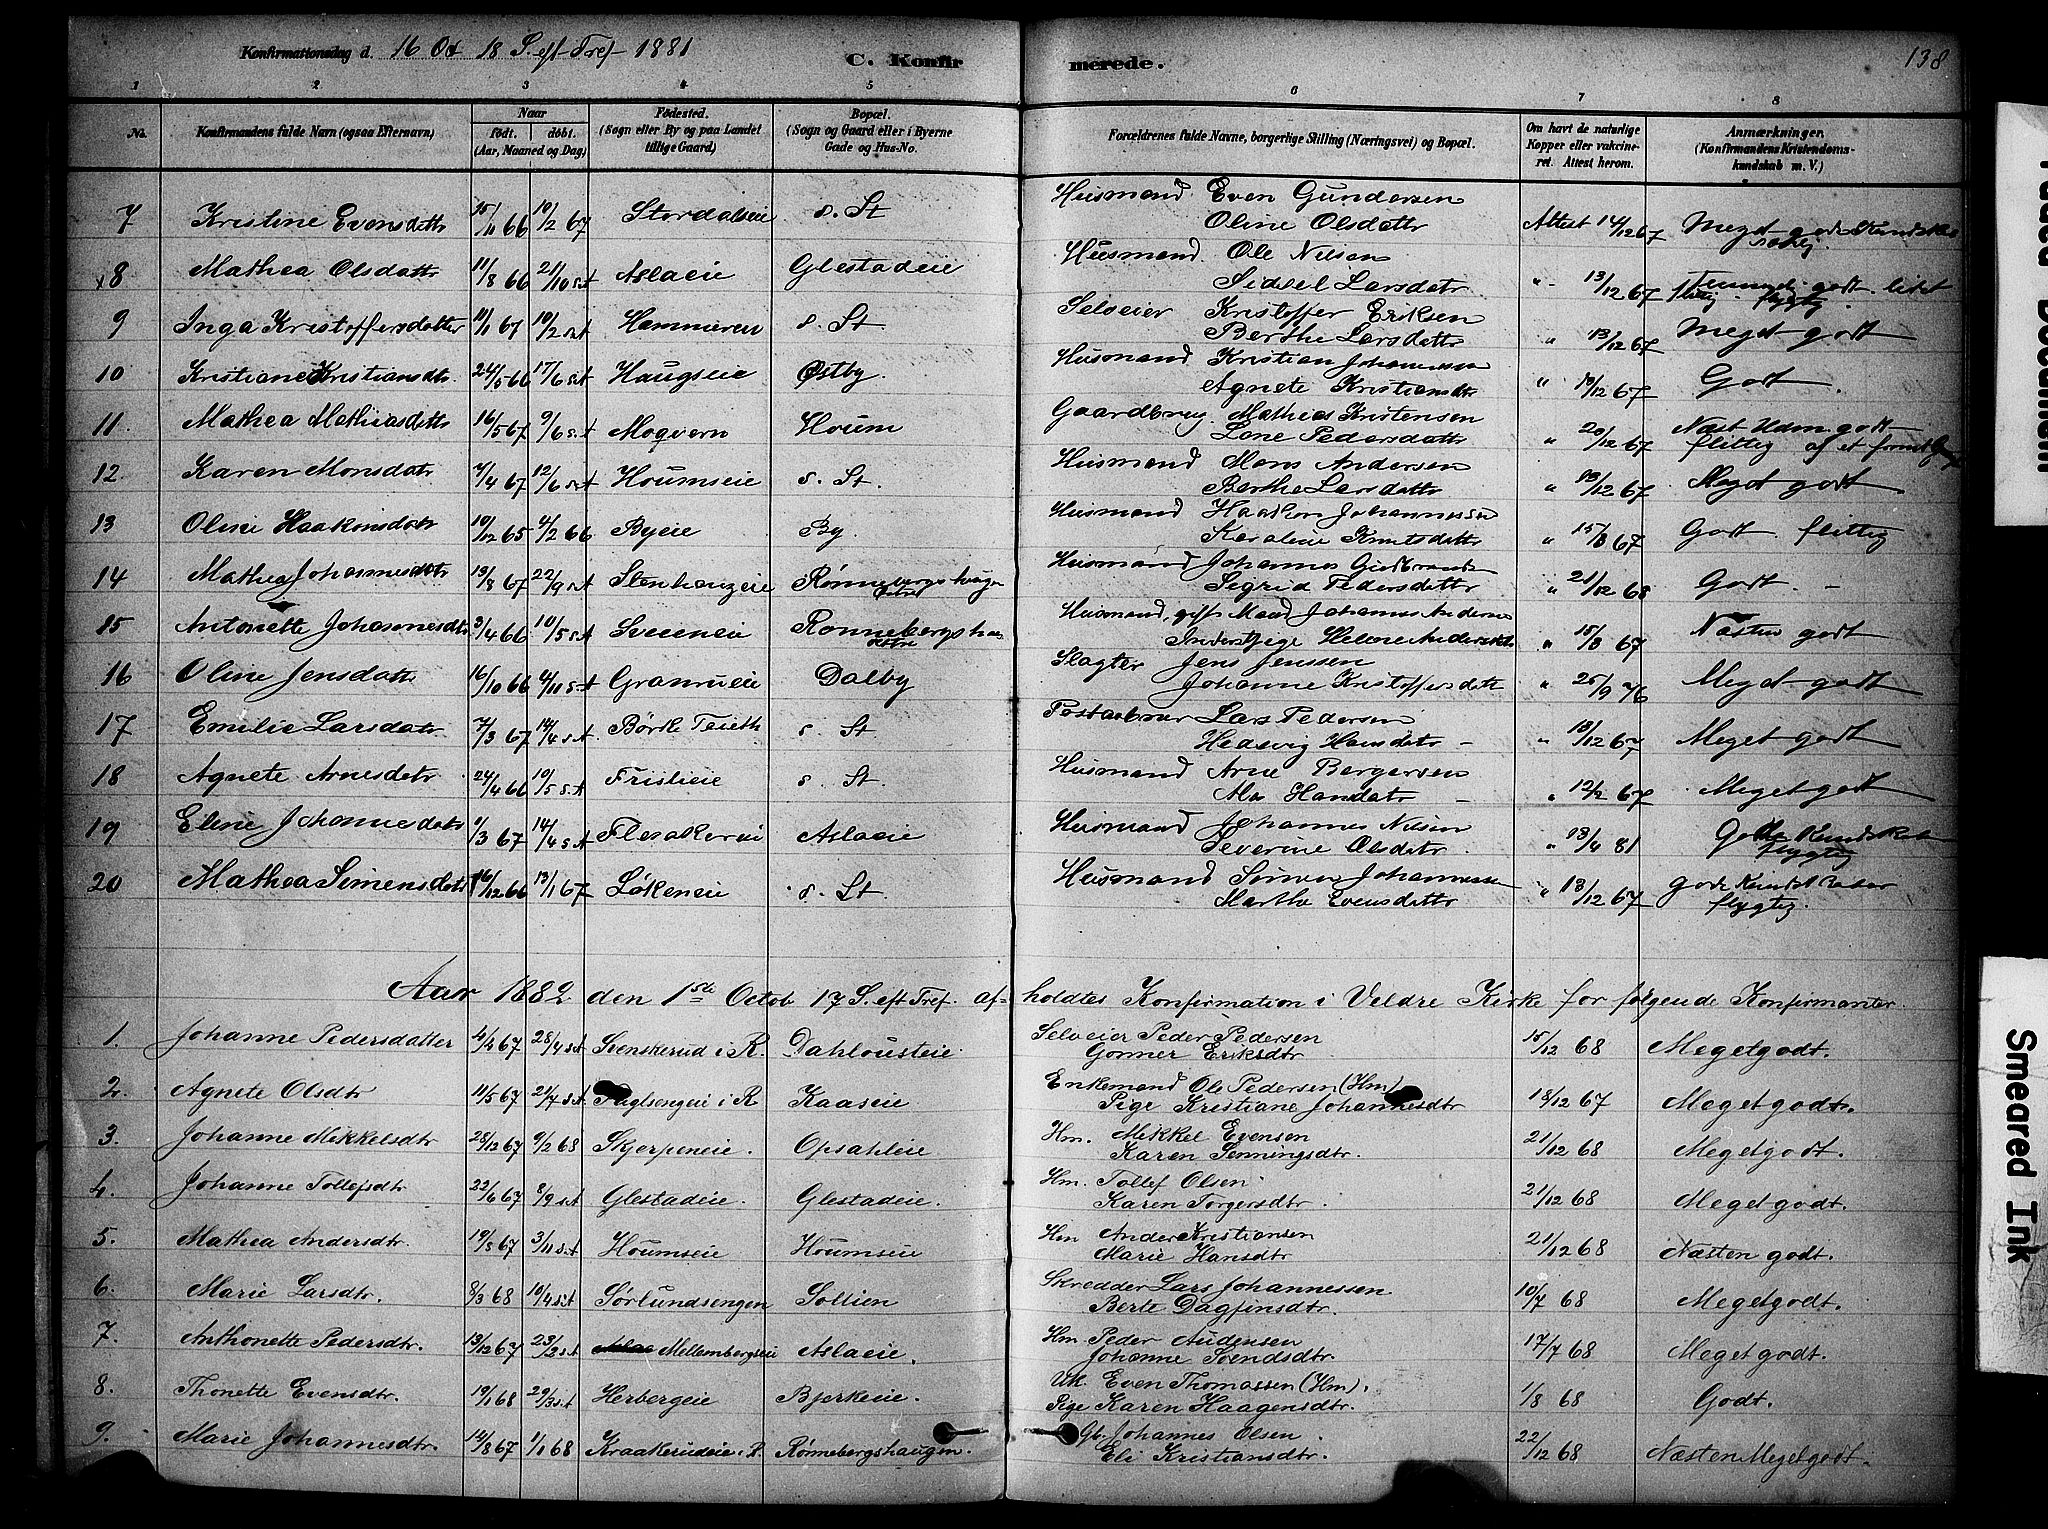 Konfirmationsdag d. 16 Oct 18 S. eft Tref 1881
C. Konfirmerede.
138
1 2 3 4 5 6 7 8
No. Konfirmandens fulde Navn (ogsaa Efternavn) Naar født. døbt. (Aar, Maaned og Dag) Fødested. (Sogn eller By og paa Landet tillige Gaard) Bopæl. (Sogn og Gaard eller i Byerne Gade og Hus-No. Forældrenes fulde Navne, borgerlige Stilling (Næringsvei) og Bopæl. Om havt de naturlige Kopper eller vakcineret. Attest herom. Anmærkninger. (Konfirmandens Kristendomskundskab m. V.)
7 Kristine Evensdattr 15/11 66 10/2 67 Stordalseie s. St Husmand Even Gundersen Attest 14/12 67 Meget gode Kundska
Oline Olsdattr
x8 Mathea Olsdattr 11/8 66 21/10 s.A Aslaeie Glestadeie Husmand Ole Nilsen " 13/12 67 Temmel. godt. lidet flittig. flygtig
Sidsel Larsdatr
9 Inga Kristoffersdatter 11/1 67 10/2 s.A Hammeren s. St Selveier Kristoffer Eriksen " 13/12 67 Meget godt
Berthe Larsdattr
10 Kristiane Kristiansdtr. 24/5 66 17/6 s.A Haugseie Østby Husmand Kristian Johannessen " 10/12 67 Godt.
Agnete Kristiansdtr
11. Mathea Mathiasdattr 16/5 67 9/6 s.A Moqvern Houm Gaardbrug. Mathias Kristensen " 20/12 67 Næst Udm. godt flittig
Lone Pedersdattr
12 Karen Monsdatr 7/4 67 12/6 s.A Houmseie s. St. Husmand Mons Andersen " 13/12 67 Meget godt
Berthe Larsdattr
13 Oline Haakonsdatr 10/12 65 4/2 66 Byeie By. Husmand Haakon Johannessen " 15/8 67 Godt. flittig
Karoline Knutsdattr
14 Mathea Johannesdatr 13/8 67 22/9 s.A Stenhaugeie Rønnebergshaugen østre Husmand Johannes Gudbrands " 21/12 68 Godt. –
Sigrid Pedersdattr
15 Antonette Johannesdtr 3/4 66 10/5 s.A Sveeneie Rønnebergshau østre Husmand, gift Mand Johannes Anderse " 15/8 67 Næsten godt
Inderst, Pige Helene Andersdtr
16 Oline Jensdattr 16/10 66 4/11 s.A Granrueie Dalby Slagter Jens Jenssen " 25/9 76 Meget godt
Johanne Kristoffersdatt
17 Emilie Larsdatr 7/3 67 14/4 s.A. Børke s. St Postaabner Lars Pedersen " 13/12 67 Meget godt
Hedevig Hansdatr –
18 Agnete Arnesdatr 24/4 66 10/5 s.A Frislieie s. St. Husmand Arne Bergersen " 12/2 67 Meget godt
Hansdatr –
19 Eline Johannesdatr 1/3 67 14/4 s.A Flesakereie Aslaeie Husmand Johannes Nilsen " 18/4 81 Gode Kundskab flygtig
Severine Olsdatr.
20 Mathea Simensdatr 16/12 66 13/1 67 Løkeneie s. St. Husmand Simen Johannessen " 13/12 67 gode Kundskaber flygtig.
Marthe Evensdattr
Aar 1882 den 1ste Octob 17 S. eft Tref. afholdtes Konfirmation i Veldre Kirke for følgende Konfirmanter
1. Johanne Pedersdatter 4/4 67 28/4 s.A Svenskerud i R. Dahlousteie Selveier Peder Pedersen 15/12 68 Meget godt.
Gonner Eriksdtr
2. Agnete Olsdtr 11/5 67 21/7 s.A Fuglsengeie i R Kaaseie Enkemand Ole Pedersen (Hm) 18/12 67 Meget godt.
Pige Kristiane Johannesdtr
3. Johanne Mikkelsdtr 28/12 67 9/2 68 Skjerpeneie. Opsahleie Hm. Mikkel Evensen 21/12 68 Meget godt.
Karen Henningsdtr.
4. Johanne Tollefsdtr 22/6 67 8/9 s.A Glestadeie. Glestadeie. Hm. Tollef Olsen 21/12 68 Meget godt.
Karen Torgersdtr.
5. Mathea Andersdtr. 19/8 67 3/11 s.A Houmseie Houmseie Hm Anders Kristiansen 21/12 68 Næsten godt.
Marie Hansdtr
6. Marie Larsdtr. 8/3 68 10/4 s.A Sørlundsengen Sollien Skredder Lars Johannessen 10/7 68 Meget godt.
Berte Dagfinsdtr.
7. Anthonette Pedersdtr. 13/12 67 23/2 s.A Mellembergseie Aslaeie. Hm Peder Audensen 17/7 68 Meget godt.
Johanne Svendsdtr.
8. Thonette Evensdtr. 19/1 68 29/3 s.A Herbergeie Bjerkeie. Uk. Even Thomassen (Hm). 1/8 68 Godt.
Pige Karen Haagensdtr.
9. Marie Johannesdtr. 14/8 67 1/1 68 Kraakerudeie i R. Rønnebergshaugen. Gb. Johannes Olsen. 22/12 68 Næsten Meget godt.
Eli Kristiansdtr.
Smeared Ink